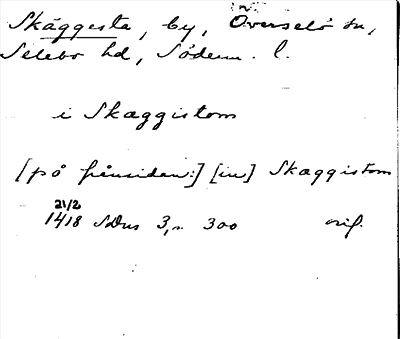 Skäggesta, by, Överselö sn,
Selebo hd, Söderm. l.
i Skæggistom
[på frånsidan:] [in] Skæggistom
21/2
1418 SDns 3, s. 300 orig.